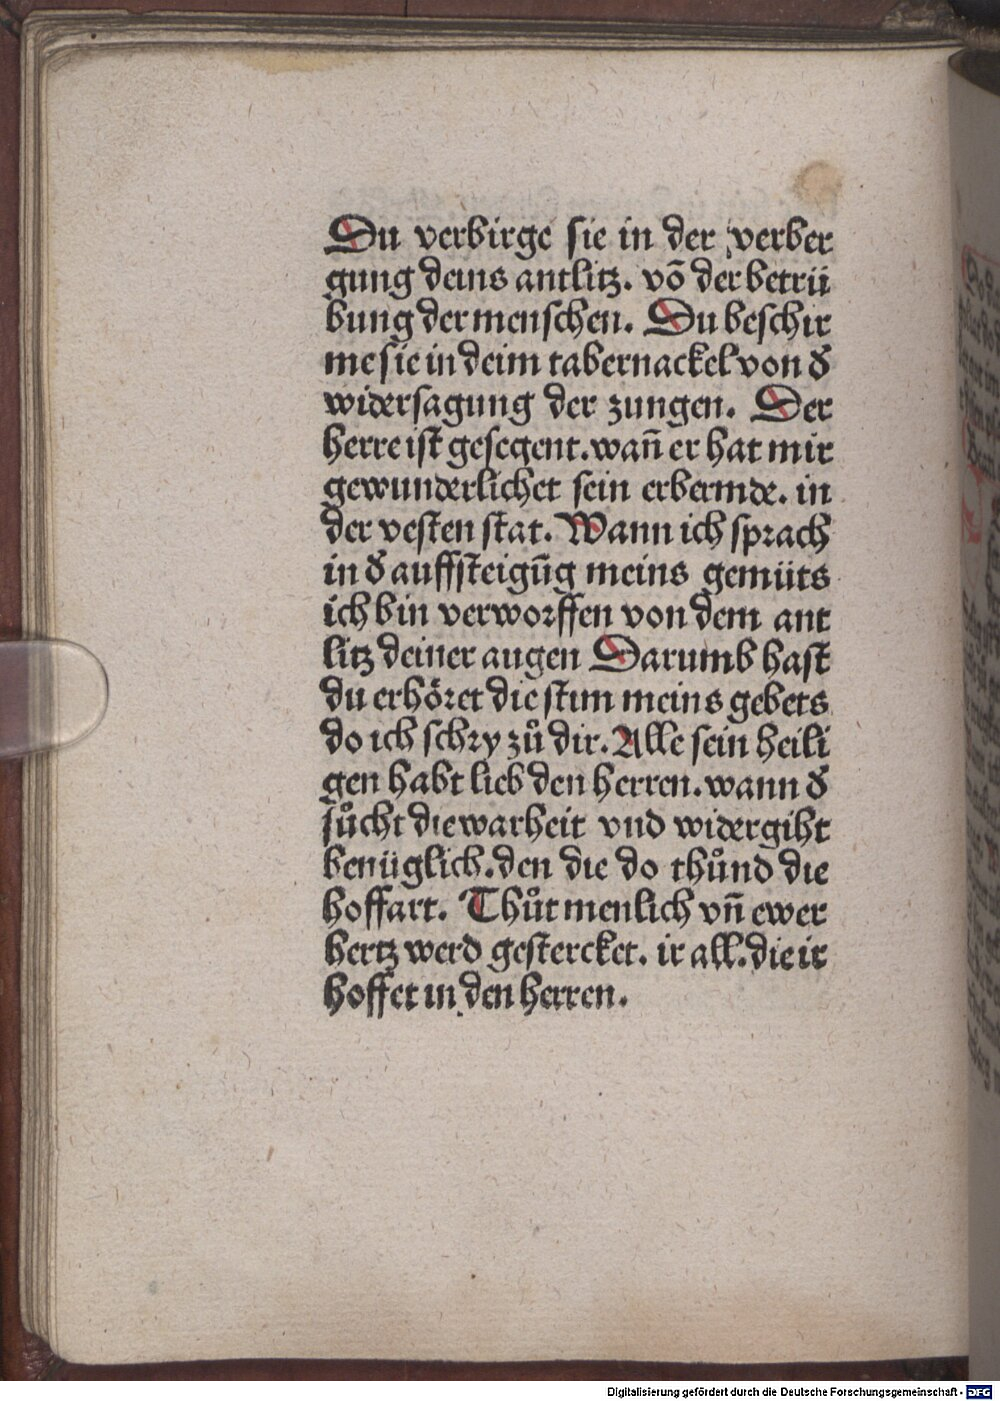 Du verbirge sie in der verber
gung deins antlitz. võ der betrü
bung der menschen. Du beschir
me sie in deim tabernackel von đ
widersagung der zungen. Der
herre ist gesegent. wañ er hat mir
gewunderlichet sein erbermde. in
der vesten stat. Wann ich sprach
in đ auffsteigūg meins gemüts
ich bin verworffen von dem ant
litz deiner augen Darumb hast
du erhöret die stim meins gebets
do ich schry zů dir. Alle sein heili
gen habt lieb den herren. wann đ
sůcht die warheit vnd widergiht
benüglich. den die do thůnd die
hoffart. Thůt menlich vñ ewer
hertz werd gestercket. ir all. die ir
hoffet in den herren.
Digitalisierung gefördert durch die Deutsche Forschungsgemeinschaft - DFG